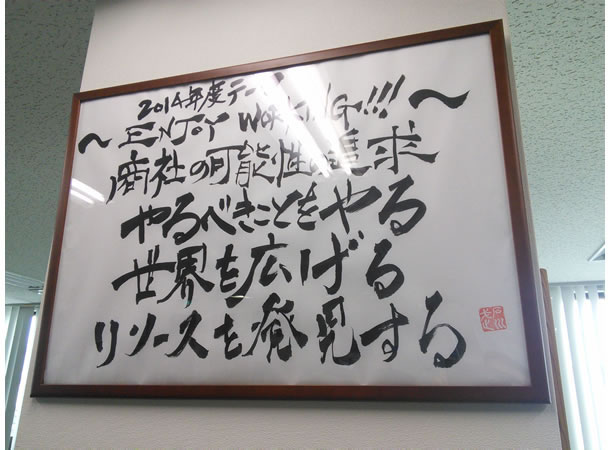 2014年度テーマ
～ENJOY WORKING!!!～
商社の可能性の追求
やるべきことをやる
世界を広げる
リソースを発見する